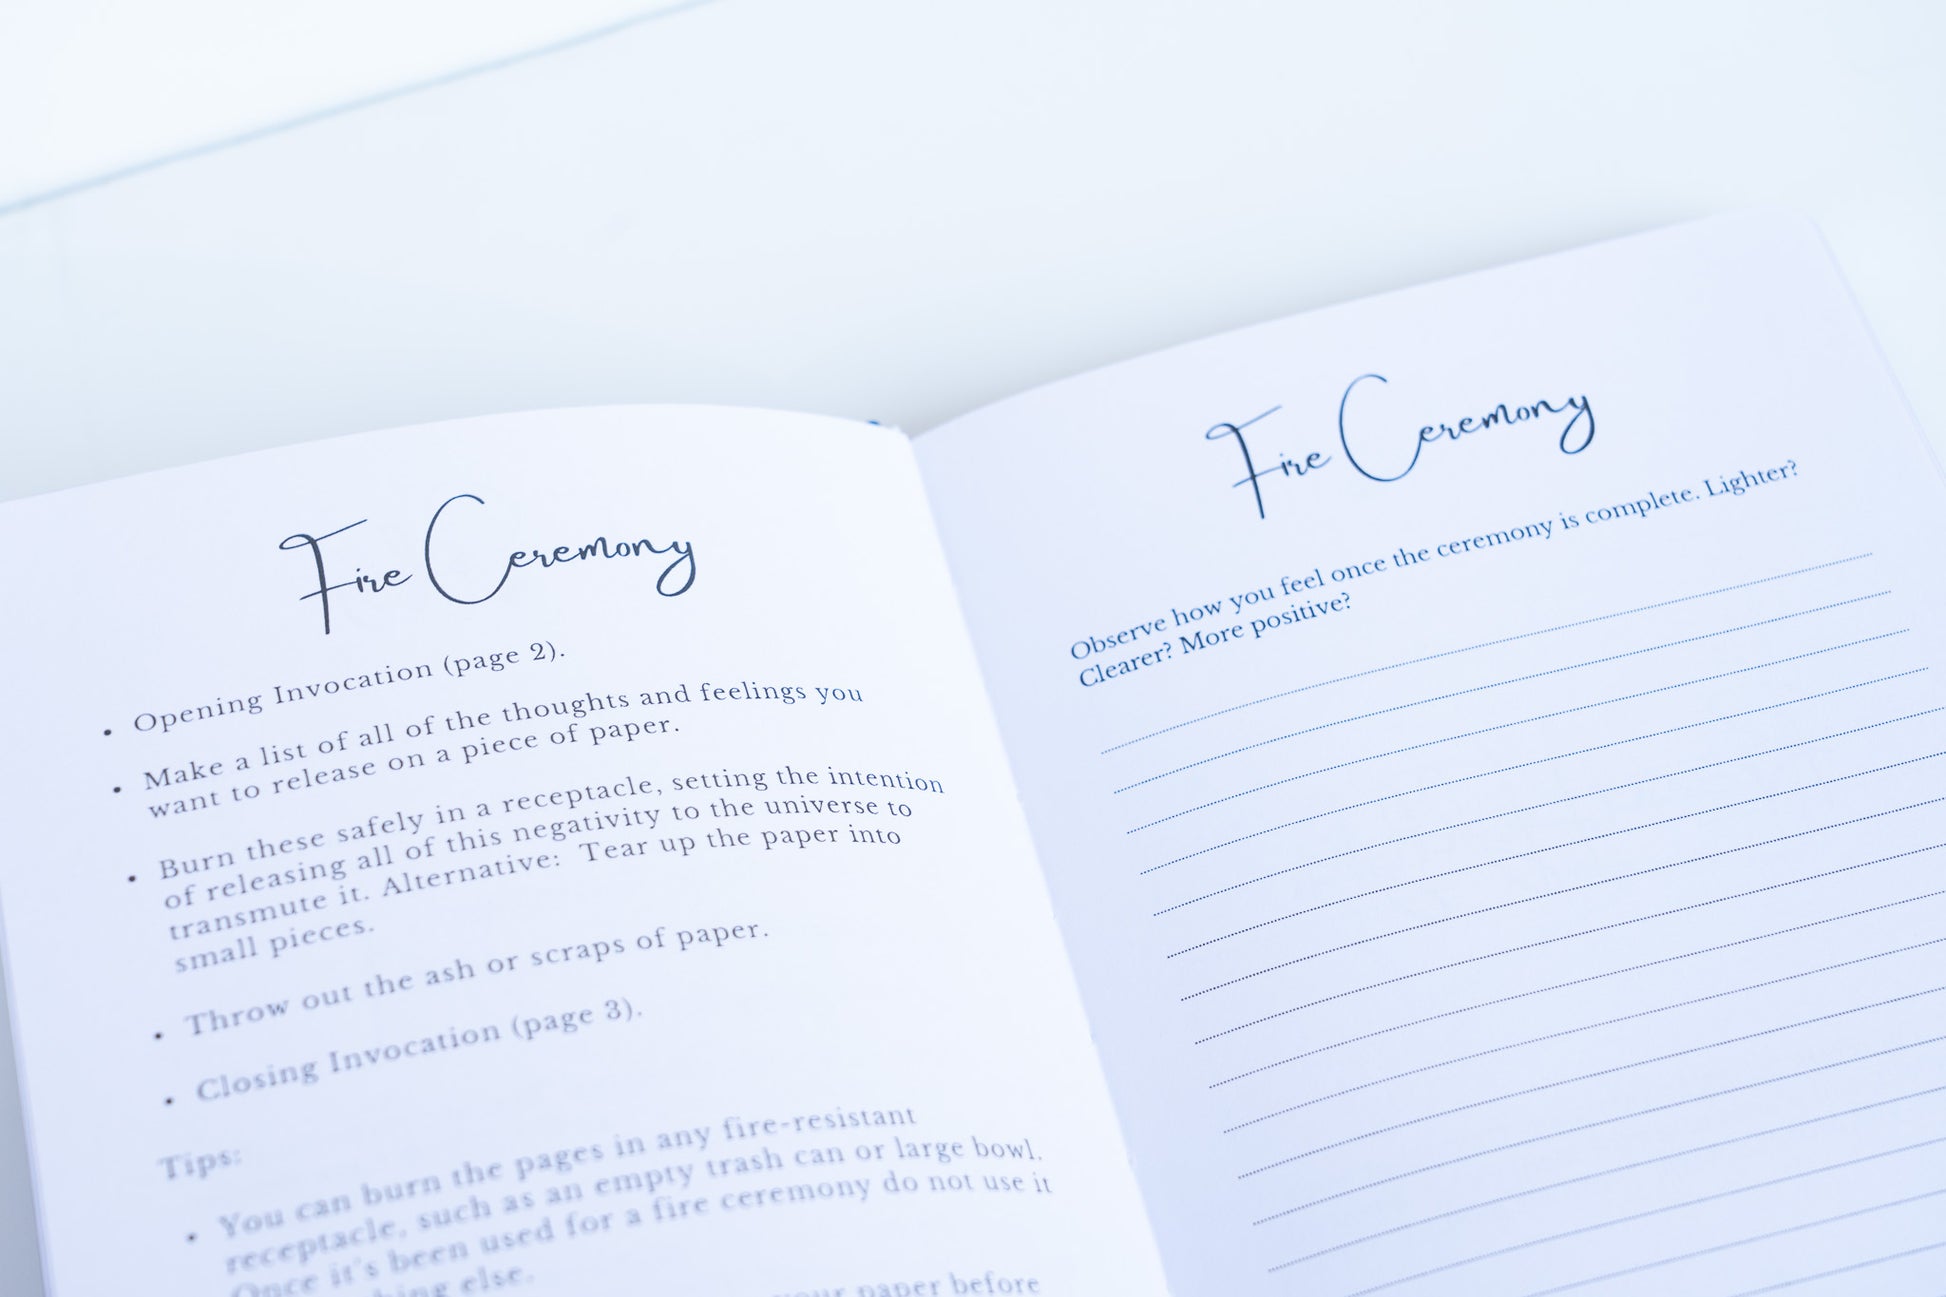 Fire Ceremony
• Opening Invocation (page 2).
• Make a list of all of the thoughts and feelings you
want to release on a piece of paper.
• Burn these safely in a receptacle, setting the intention
of releasing all of this negativity to the universe to
transmute it. Alternative: Tear up the paper into
small pieces.
• Throw out the ash or scraps of paper.
• Closing Invocation (page 3).
Tips:
• You can burn the pages in any fire-resistant
receptacle, such as an empty trash can or large bowl.
Once it's been used for a fire ceremony do not use it
else.
your paper before
Fire Ceremony
Observe how you feel once the ceremony is complete. Lighter?
Clearer? More positive?